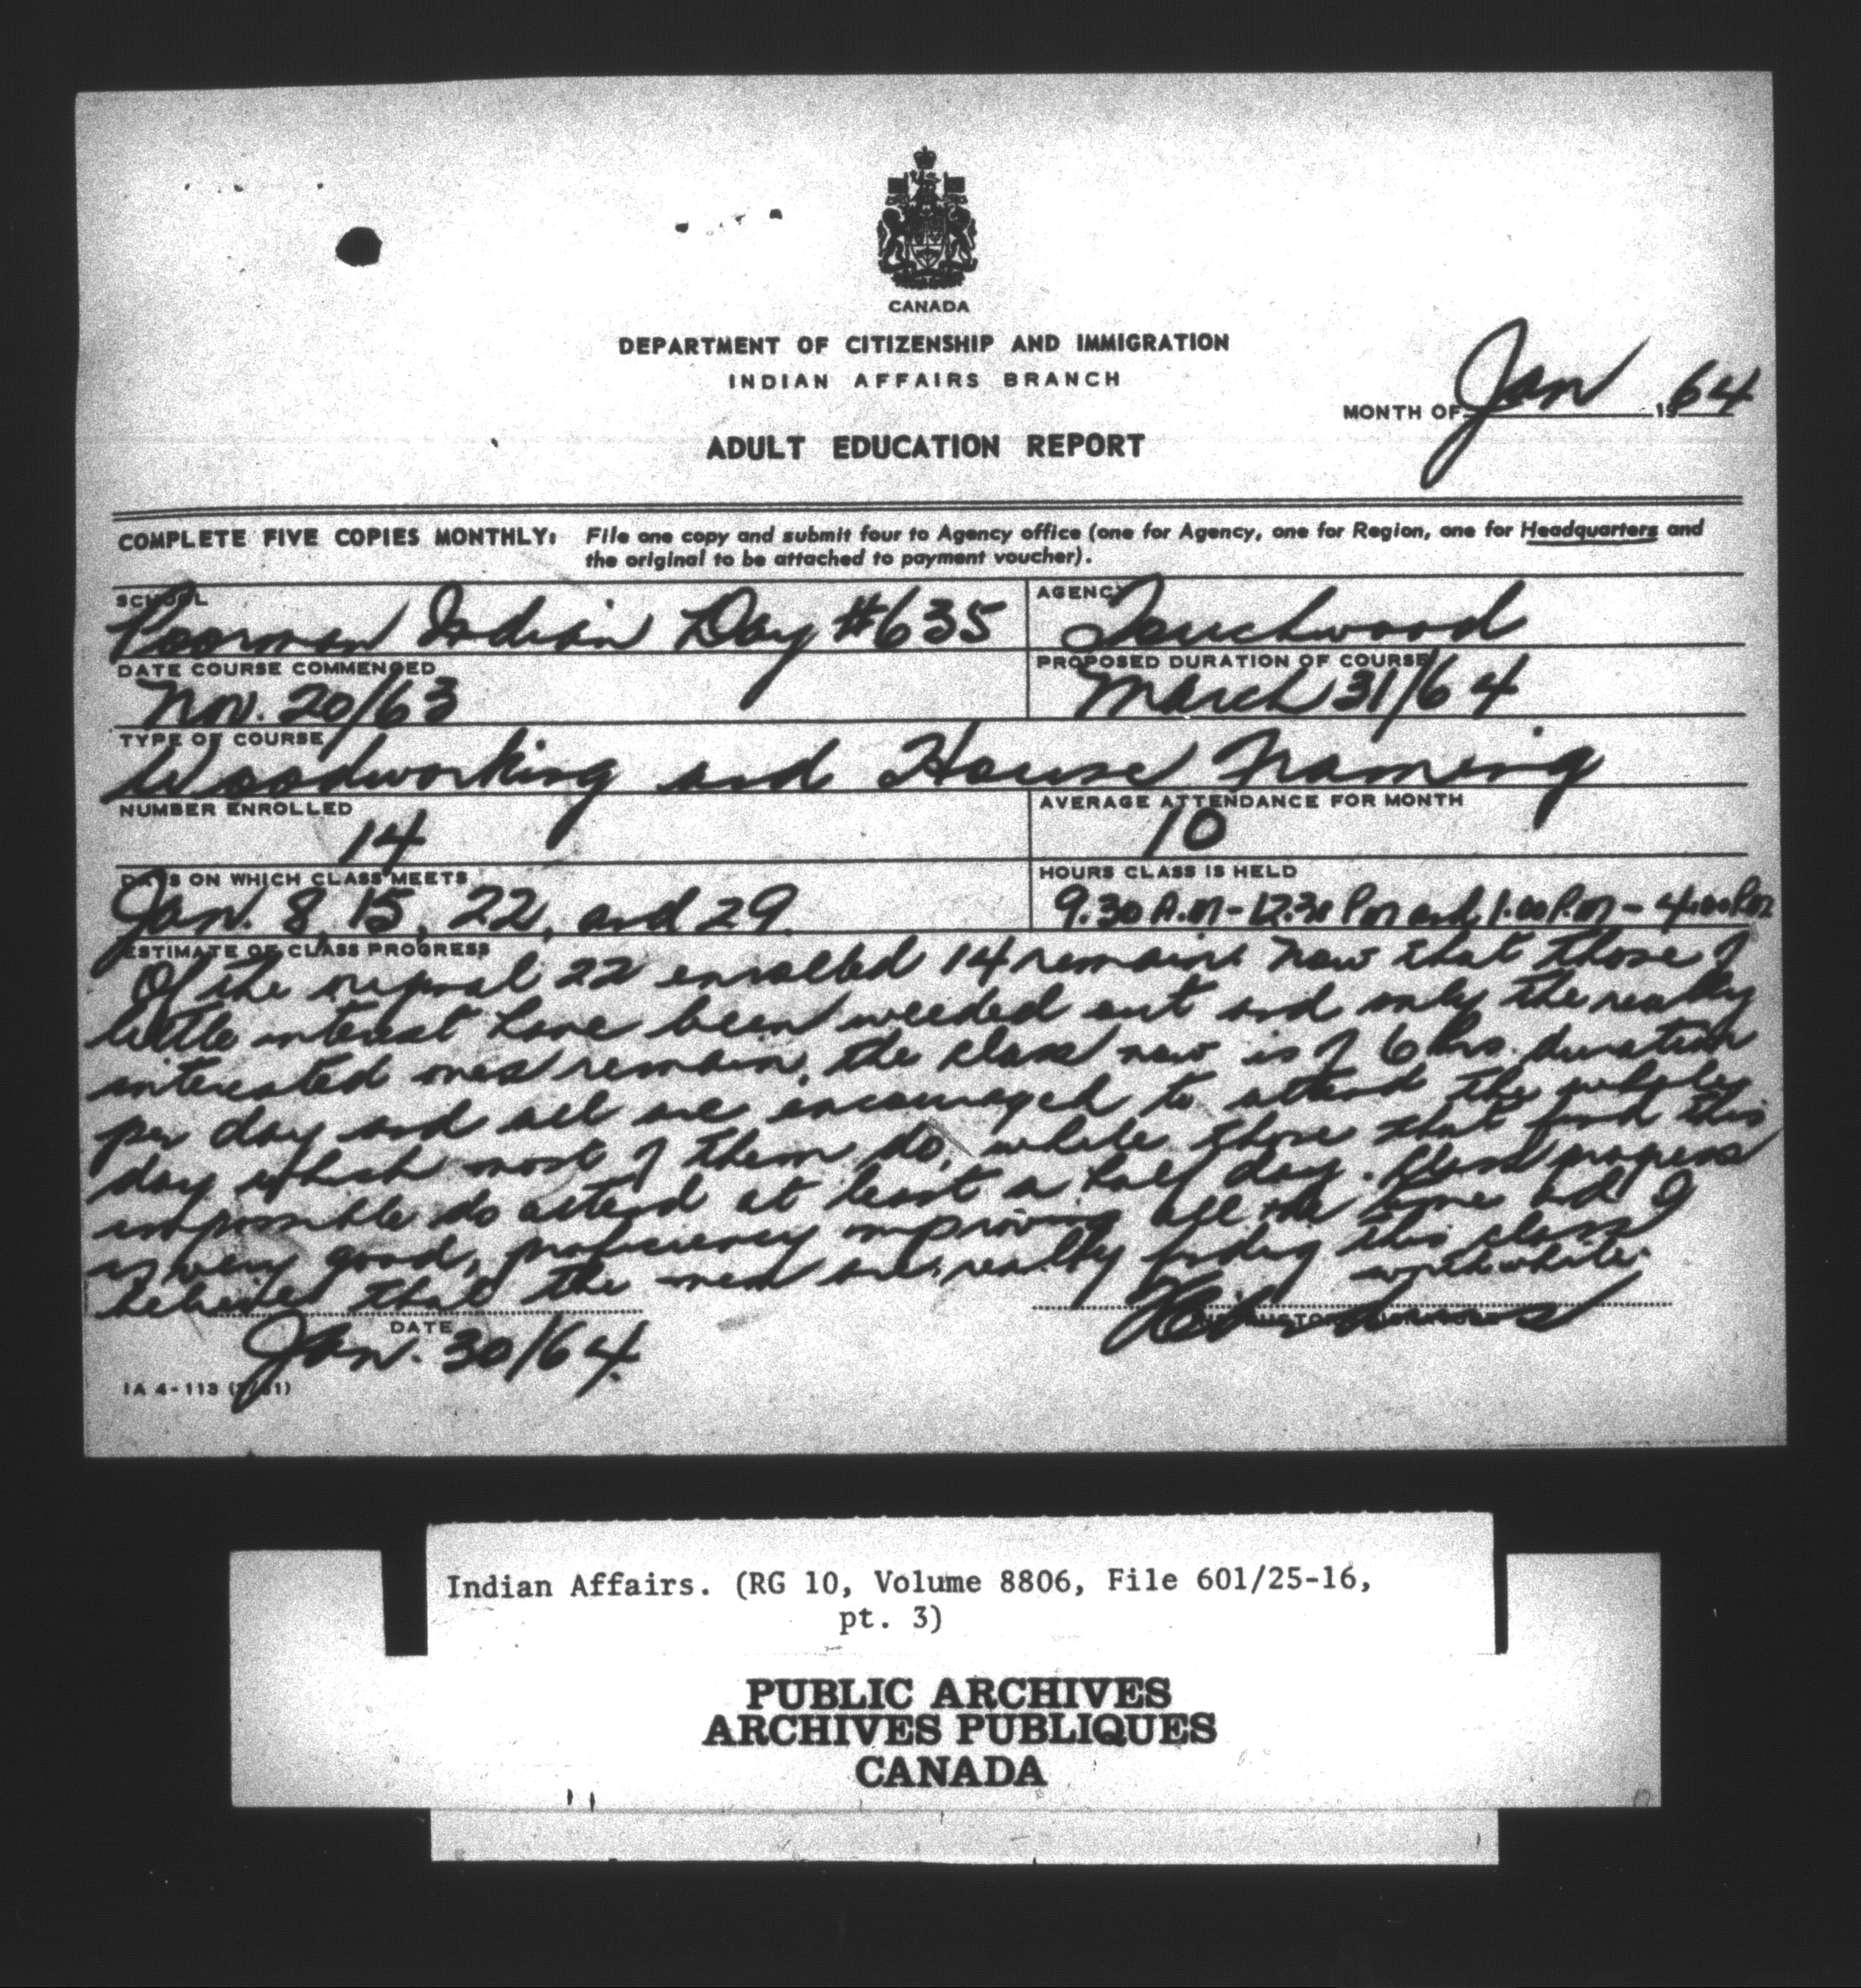 CANADA
DEPARTMENT OF CITIZENSHIP AND IMMIGRATION
INDIAN AFFAIRS BRANCH
MONTH OF Jan 1964
ADULT EDUCATION REPORT
COMPLETE FIVE COPIES MONTHLY: File one copy and submit four to Agency office (one for Agency, one for Region, one for Headquarters and
the original to be attached to payment voucher).
SCHOOL
Poorman Indian Day #635
AGENCY
Touchwood
DATE COURSE COMMENCED
Nov. 20/63
PROPOSED DURATION OF COURSE
March 31/64
TYPE OF COURSE
Woodworking and House Framing
NUMBER ENROLLED
14
AVERAGE ATTENDANCE FOR MONTH
10
DAYS ON WHICH CLASS MEETS
Jan. 8, 15, 22, and 29.
HOURS CLASS IS HELD
9.30 A.M - 12.30 P.M and 1.00 P.M - 4.00 P.M
ESTIMATE OF CLASS PROGRESS
Of the original 22 enrolled 14 remains now that those of
little interest have been weeded out and only the really
interested ones remain, the class now is of 6 hrs. duration
per day and all are encouraged to attend the whole
day which most of them do, while those that find this
impossible do attend at least a half day. Class progress
is very good, proficiency improving all the time and I
believe that the men are really finding this class
worthwhile.
DATE
Jan. 30/64.
INSTRUCTOR'S SIGNATURE
IA 4-113
Indian Affairs. (RG 10, Volume 8806, File 601/25-16,
pt. 3)
PUBLIC ARCHIVES
ARCHIVES PUBLIQUES
CANADA